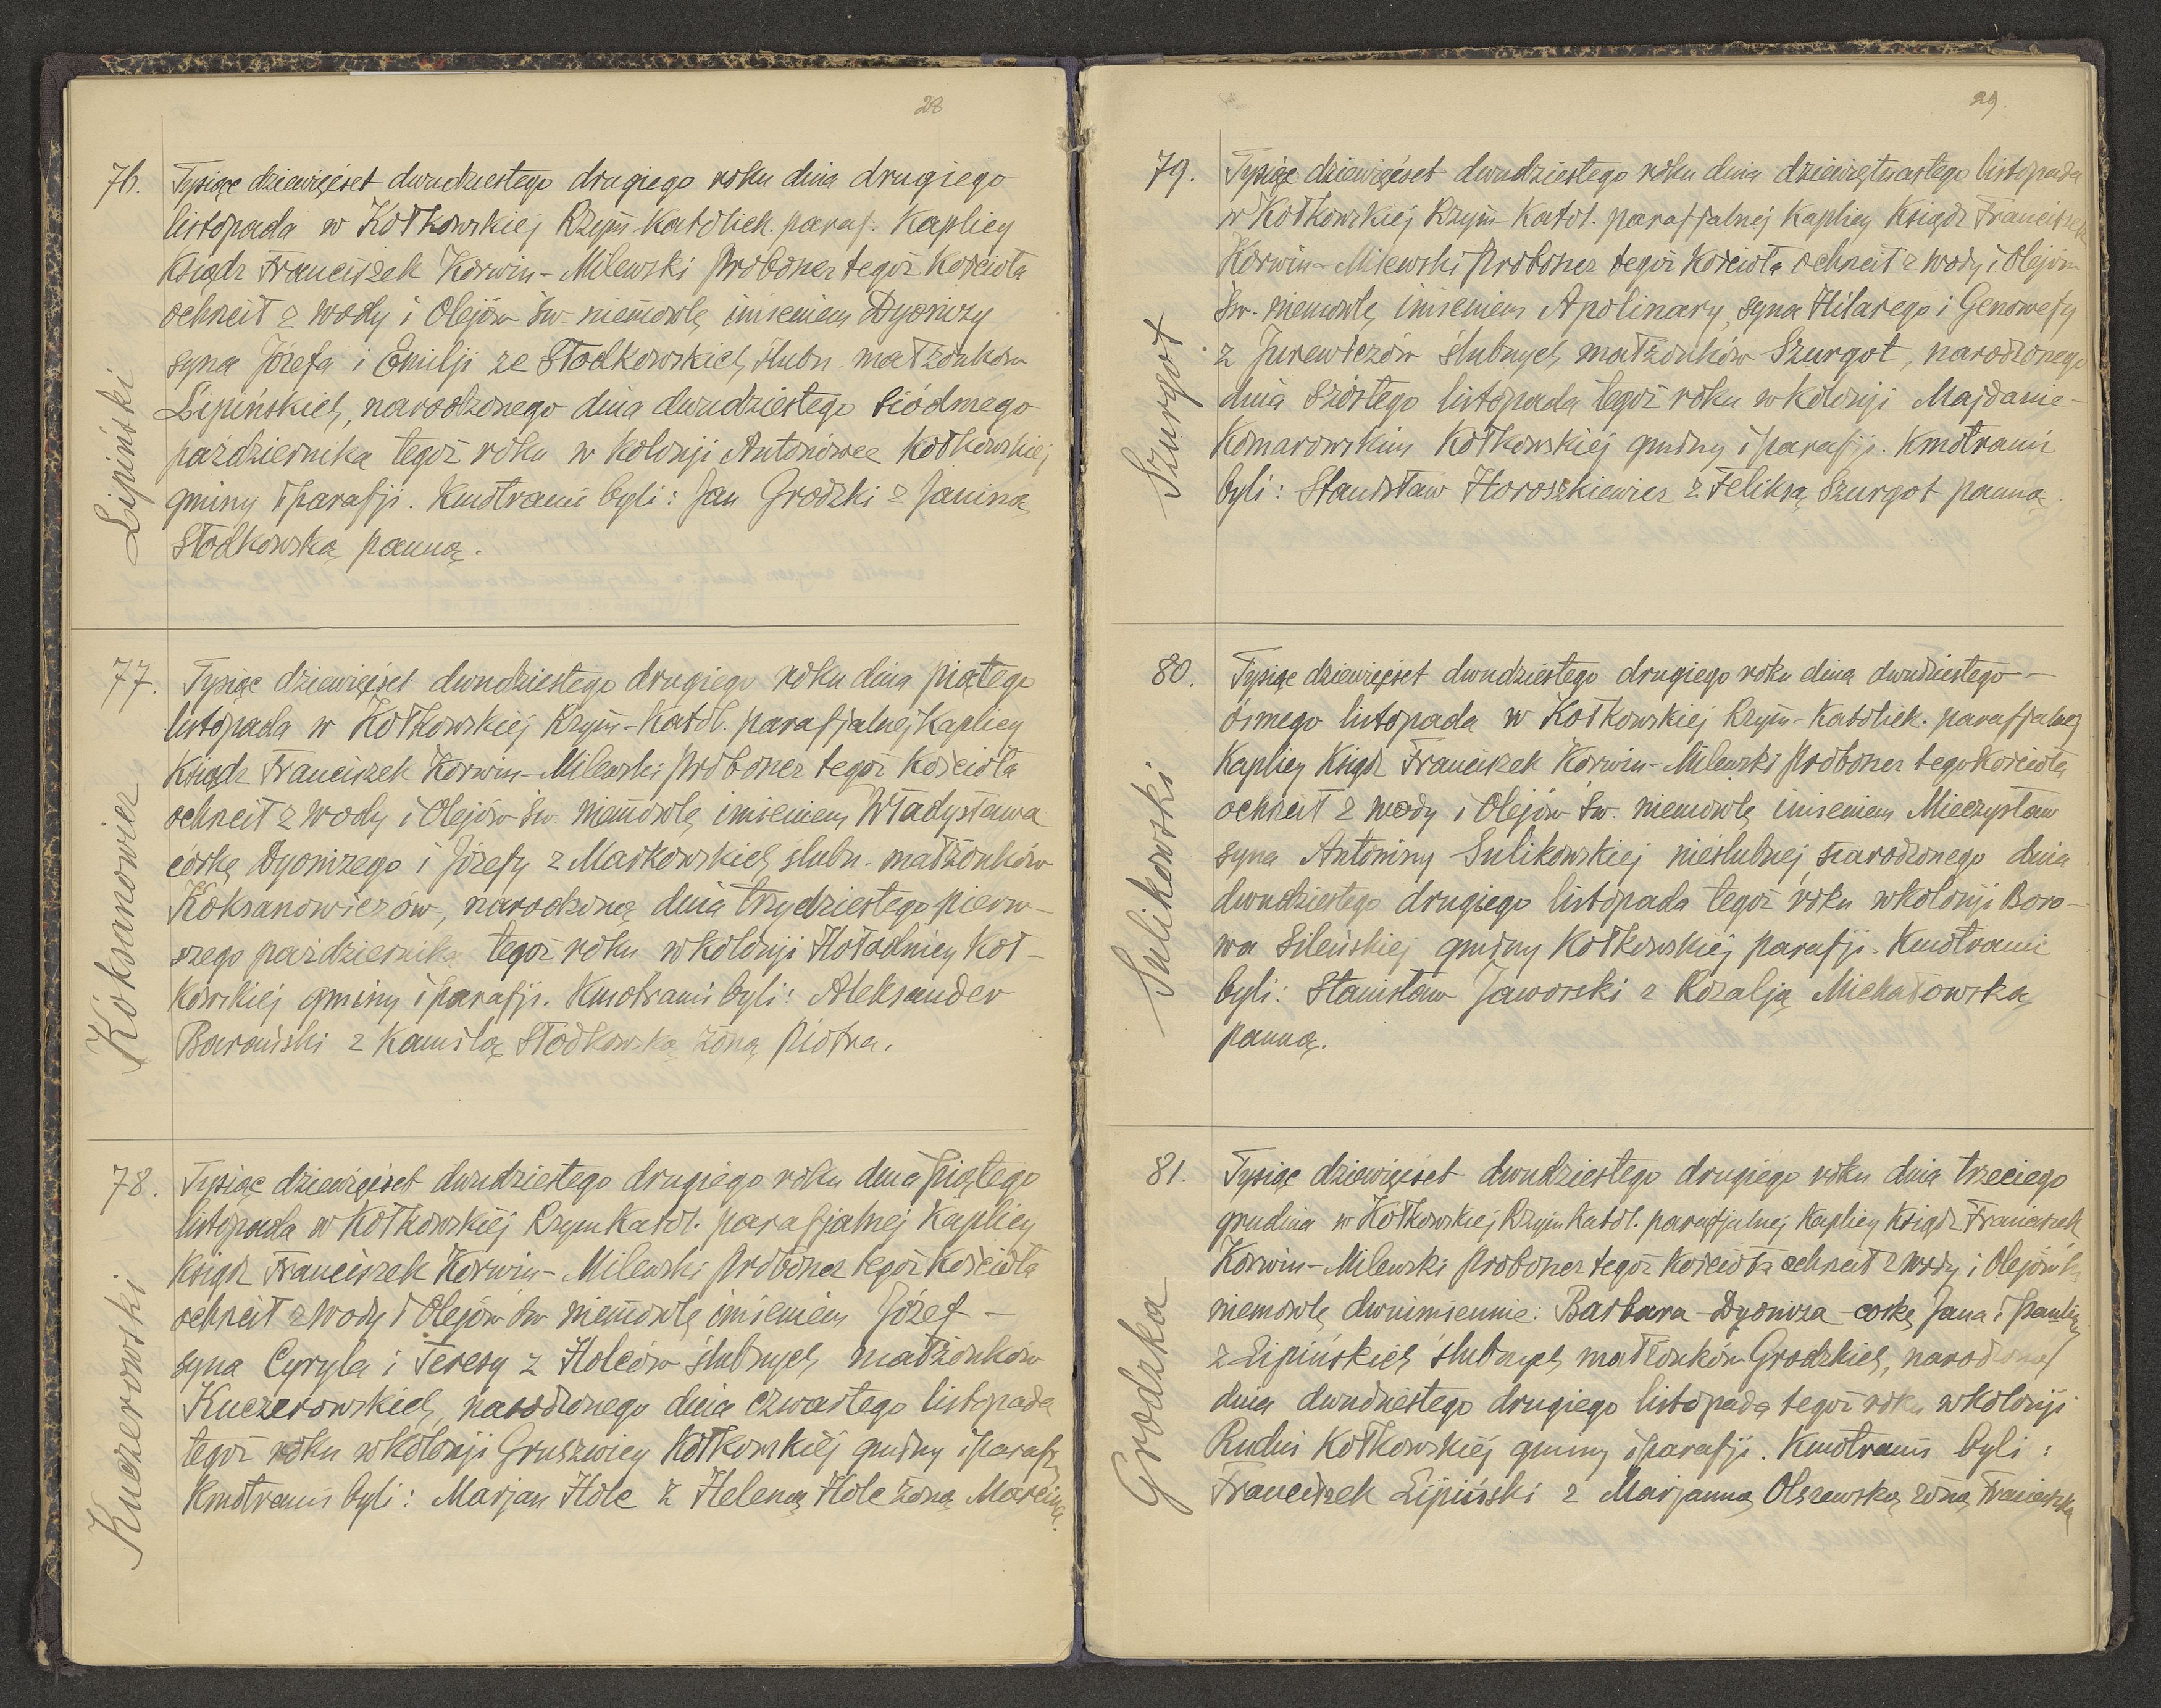 28
76.
Tysiąc dziewięćset dwudziestego drugiego roku dnia drugiego
listopada w Kołkowskiej Rzym-Katolick. paraf. Kaplicy
Ksiądz Franciszek Korwin-Milewski Proboszcz tegoż Kościoła
ochrzcił z wody i Olejów Św. niemowlę imieniem Dyonizy
syna Józefa i Emilji ze Słodkowskich, ślubn. małżonków
Lipińskich, narodzonego dnia dwudziestego siódmego
października tegoż roku w kolonji Antonówce Kołkowskiej
gminy i parafji. Kmotrami byli: Jan Grodzki z Janiną
Słodkowską panną.
Lipiński
77.
Tysiąc dziewięćset dwudziestego drugiego roku dnia piątego
listopada w Kołkowskiej Rzym-Katol. parafjalnej Kaplicy
Ksiądz Franciszek Korwin-Milewski Proboszcz tegoż Kościoła
ochrzcił z wody i Olejów Św. niemowlę imieniem Władysława
córkę Dyonizego i Józefy z Maćkowskich ślubn. małżonków
Koksanowiczów, narodzoną dnia trzydziestego pierw-
szego października tegoż roku w kolonji Hołodnicy Koł-
kowskiej gminy i parafji. Kmotrami byli: Aleksander
Barański z Kamilą Słodkowską żoną Piotra.
Koksanowicz
78.
Tysiąc dziewięćset dwudziestego drugiego roku dnia Piątego
listopada w Kołkowskiej Rzym Katol. parafjalnej Kaplicy
Ksiądz Franciszek Korwin-Milewski Proboszcz tegoż Kościoła
ochrzcił z wody i Olejów Św niemowlę imieniem Józef —
syna Cyryla i Teresy z Holców ślubnych małżonków
Kuczerowskich, narodzonego dnia czwartego listopada
tegoż roku w kolonji Gruszwicy Kołkowskiej gminy i parafji
Kmotrami byli: Marjan Holc z Heleną Holc żoną Marcina.
Kuczerowski
29.
79.
Tysiąc dziewięćset dwudziestego roku dnia dziewiętnastego listopada
w Kołkowskiej Rzym-Katol. parafjalnej Kaplicy Ksiądz Franciszek
Korwin-Milewski Proboszcz tegoż Kościoła ochrzcił z wody i Olejów
Św. niemowlę imieniem Apolinary, syna Hilarego i Genowefy
z Jurewiczów ślubnych małżonków Szurgot, narodzonego
dnia szóstego listopada tegoż roku w kolonji Majdanie-
Komarowskim Kołkowskiej gminy i parafji. Kmotrami
byli: Stanisław Horoszkiewicz z Feliksą Szurgot panną.
Szurgot
80.
Tysiąc dziewięćset dwudziestego drugiego roku dnia dwudziestego-
ósmego listopada w Kołkowskiej Rzym-Katolick. parafjalnej
Kaplicy Ksiądz Franciszek Korwin-Milewski Proboszcz tego Kościoła
ochrzcił z wody i Olejów Św. niemowlę imieniem Mieczysław
syna Antoniny Sulikowskiej nieślubnej, narodzonego dnia
dwudziestego drugiego listopada tegoż roku w kolonji Boro-
wa Sileńskiej gminy Kołkowskiej parafji. Kmotrami
byli: Stanisław Jaworski z Rozalją Michałowską
panną.
Sulikowski
81.
Tysiąc dziewięćset dwudziestego drugiego roku dnia trzeciego
grudnia w Kołkowskiej Rzym Katol. parafjalnej Kaplicy Ksiądz Franciszek
Korwin-Milewski Proboszcz tegoż Kościoła ochrzcił z wody i Olejów Św
niemowlę dwuimiennie: Barbara-Dyoniza córkę Jana i Pauliny
z Lipińskich ślubnych małżonków Grodzkich, narodzoną
dnia dwudziestego drugiego listopada tegoż roku w kolonji
Rudni Kołkowskiej gminy i parafji. Kmotrami byli:
Franciszek Lipiński z Marjanną Olszewską żoną Franciszka
Grodzka